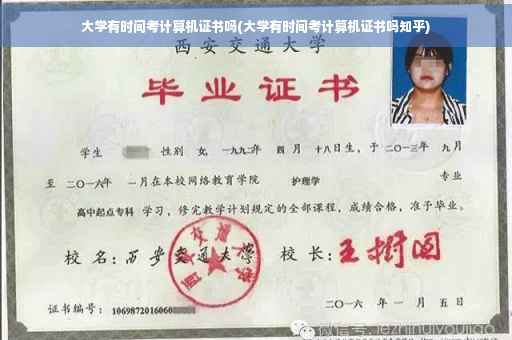 大学有时间考计算机证书吗(大学有时间考计算机证书吗知乎)
西安交通大学
毕业证书
学生 性别 女, 一九九二年 四 月 十八日生, 于 二〇一三年 九月
至 二〇一六年 一月在本校网络教育学院 护理学 专业
高中起点专科 学习, 修完教学计划规定的全部课程, 成绩合格, 准予毕业。
校 名: 西安交通大学 校 长: 王树国
西安交通大学
证书编号: 1069872016060
二〇一六 年 一 月 五 日
微信号: jezhihuiyoujiao